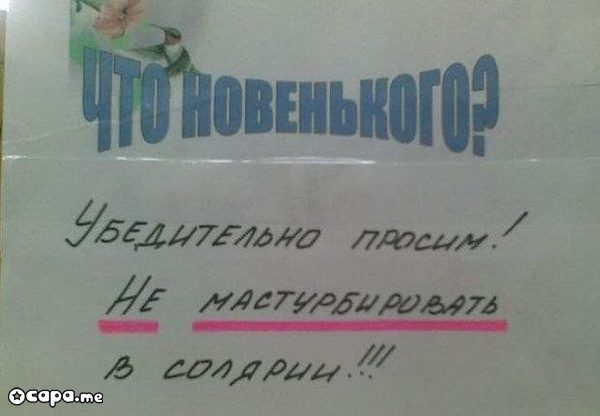 ЧТО НОВЕНЬКОГО?
УБЕДИТЕЛЬНО ПРОСИМ!
НЕ МАСТУРБИРОВАТЬ
В СОЛЯРИИ!!!
capa.me